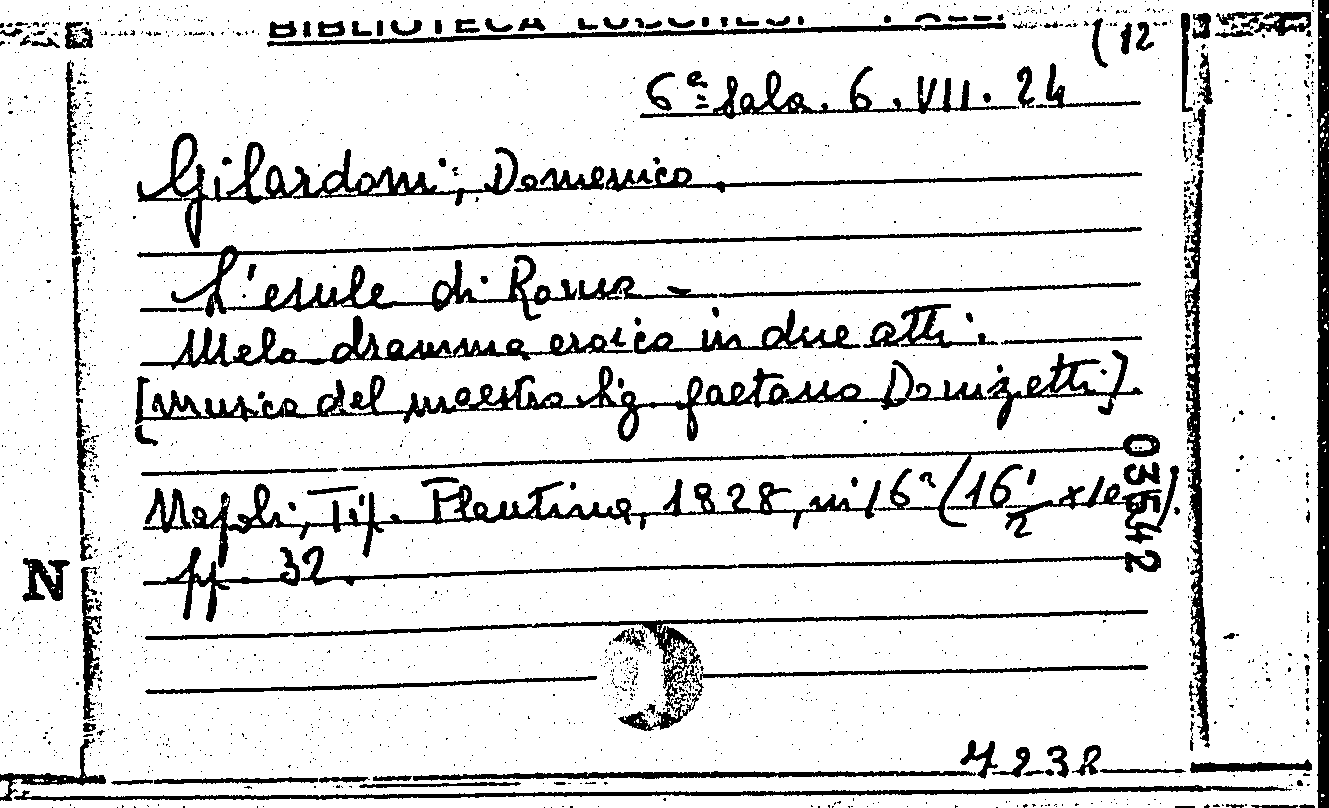 BIBLIOTECA LUCCHESI - PALLI
(12
6ª Sala. 6. VII. 24
Gilardoni, Domenico.
L'esule di Roma -
Melo-dramma eroico in due atti.
[musica del maestro Sig. Gaetano Donizetti].
Napoli, Tip. Flautina, 1828, in 16° (16 1/2 x 10).
pp. 32.
035542
N
7238